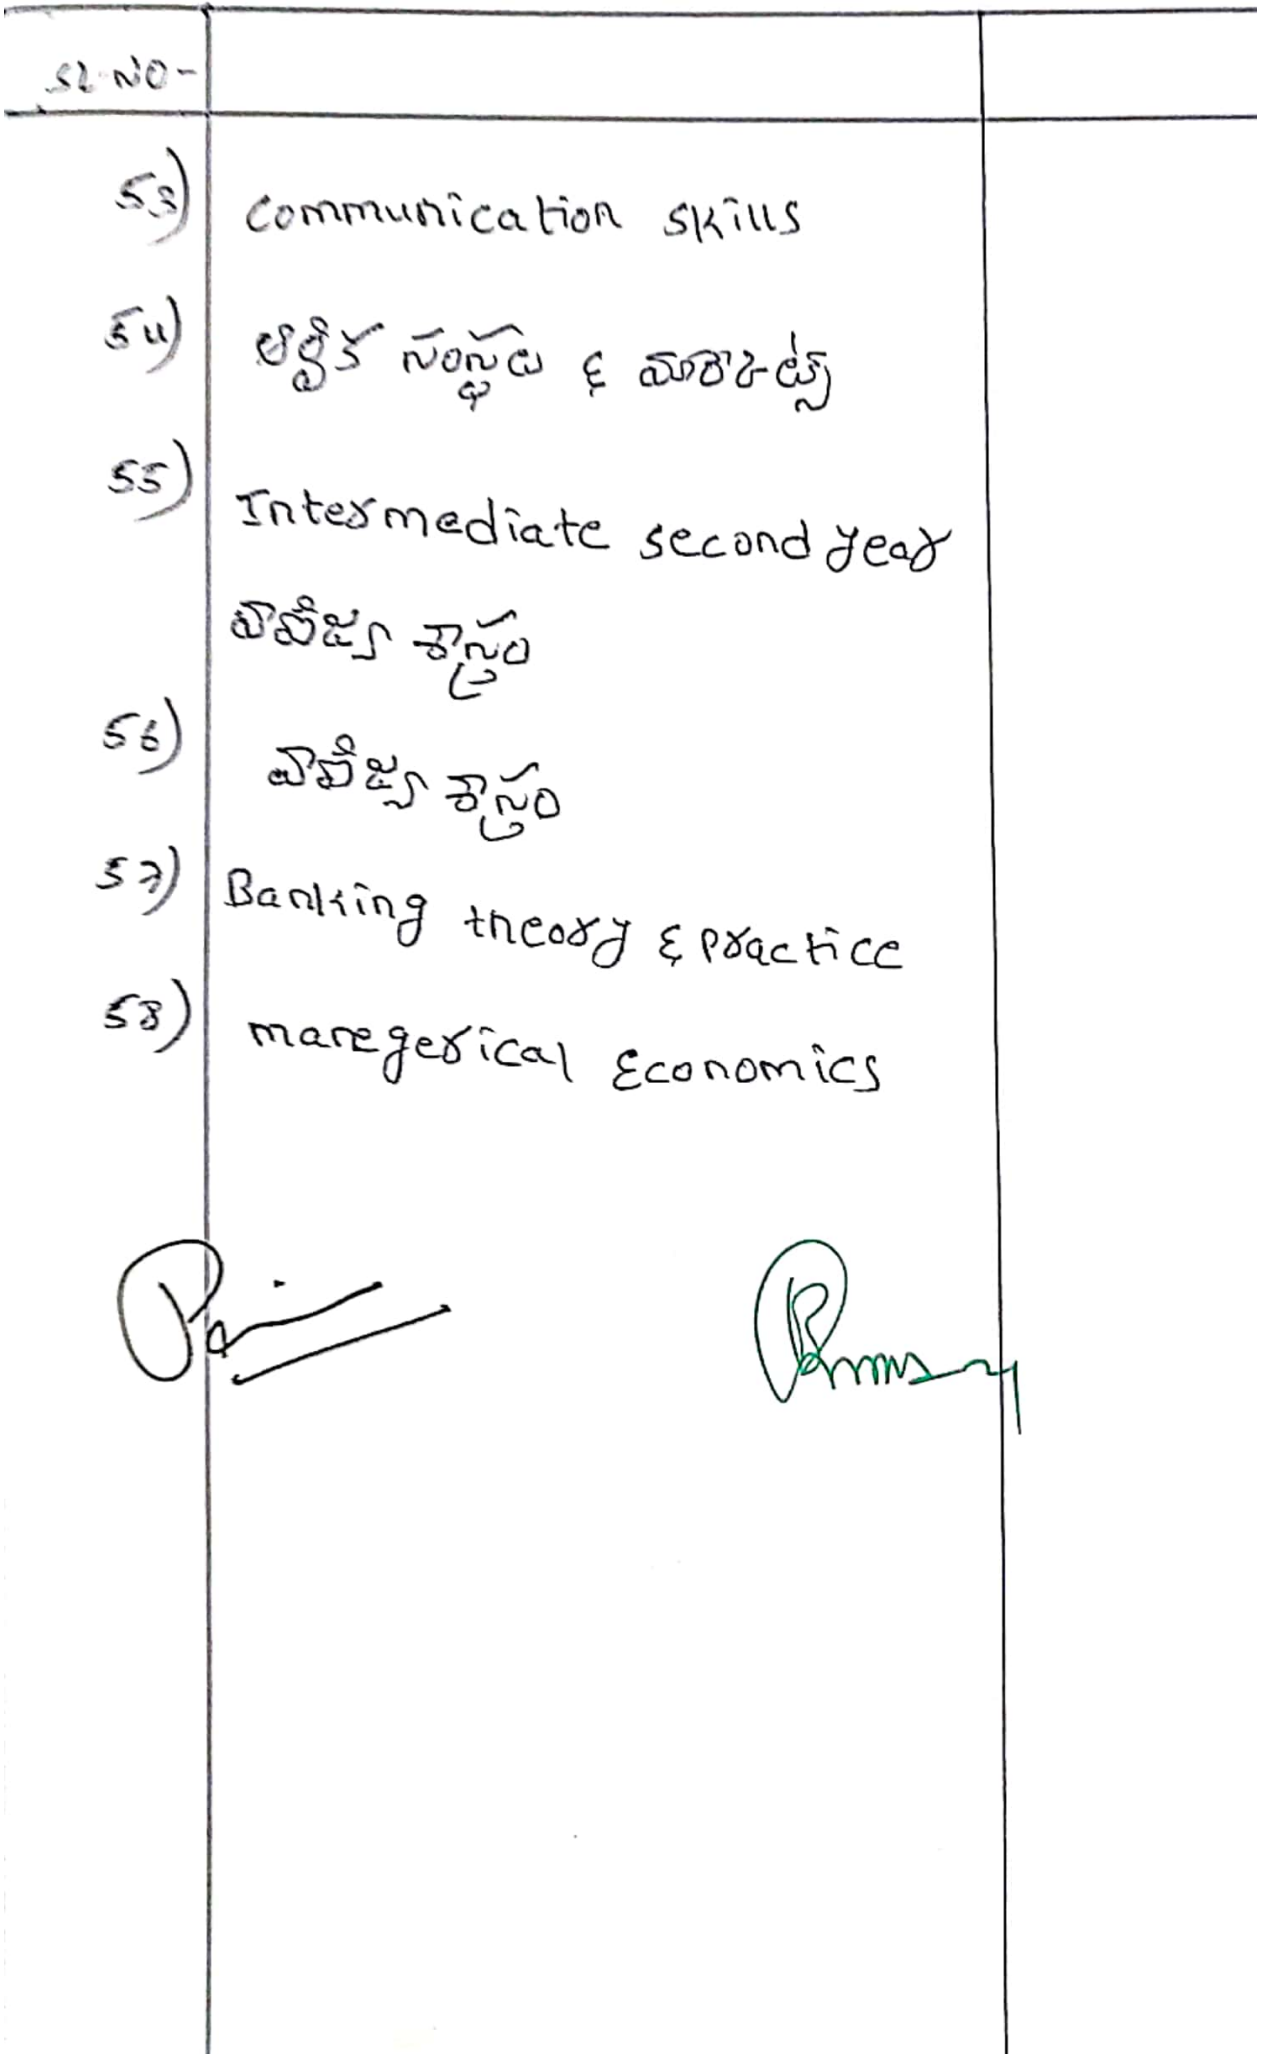 SL NO-
53) communication skills
54) ఆర్థిక సంస్థలు & మార్కెట్స్
55) Intermediate second year
వాణిజ్య శాస్త్రం
56) వాణిజ్య శాస్త్రం
57) Banking theory & practice
58) manegerical Economics